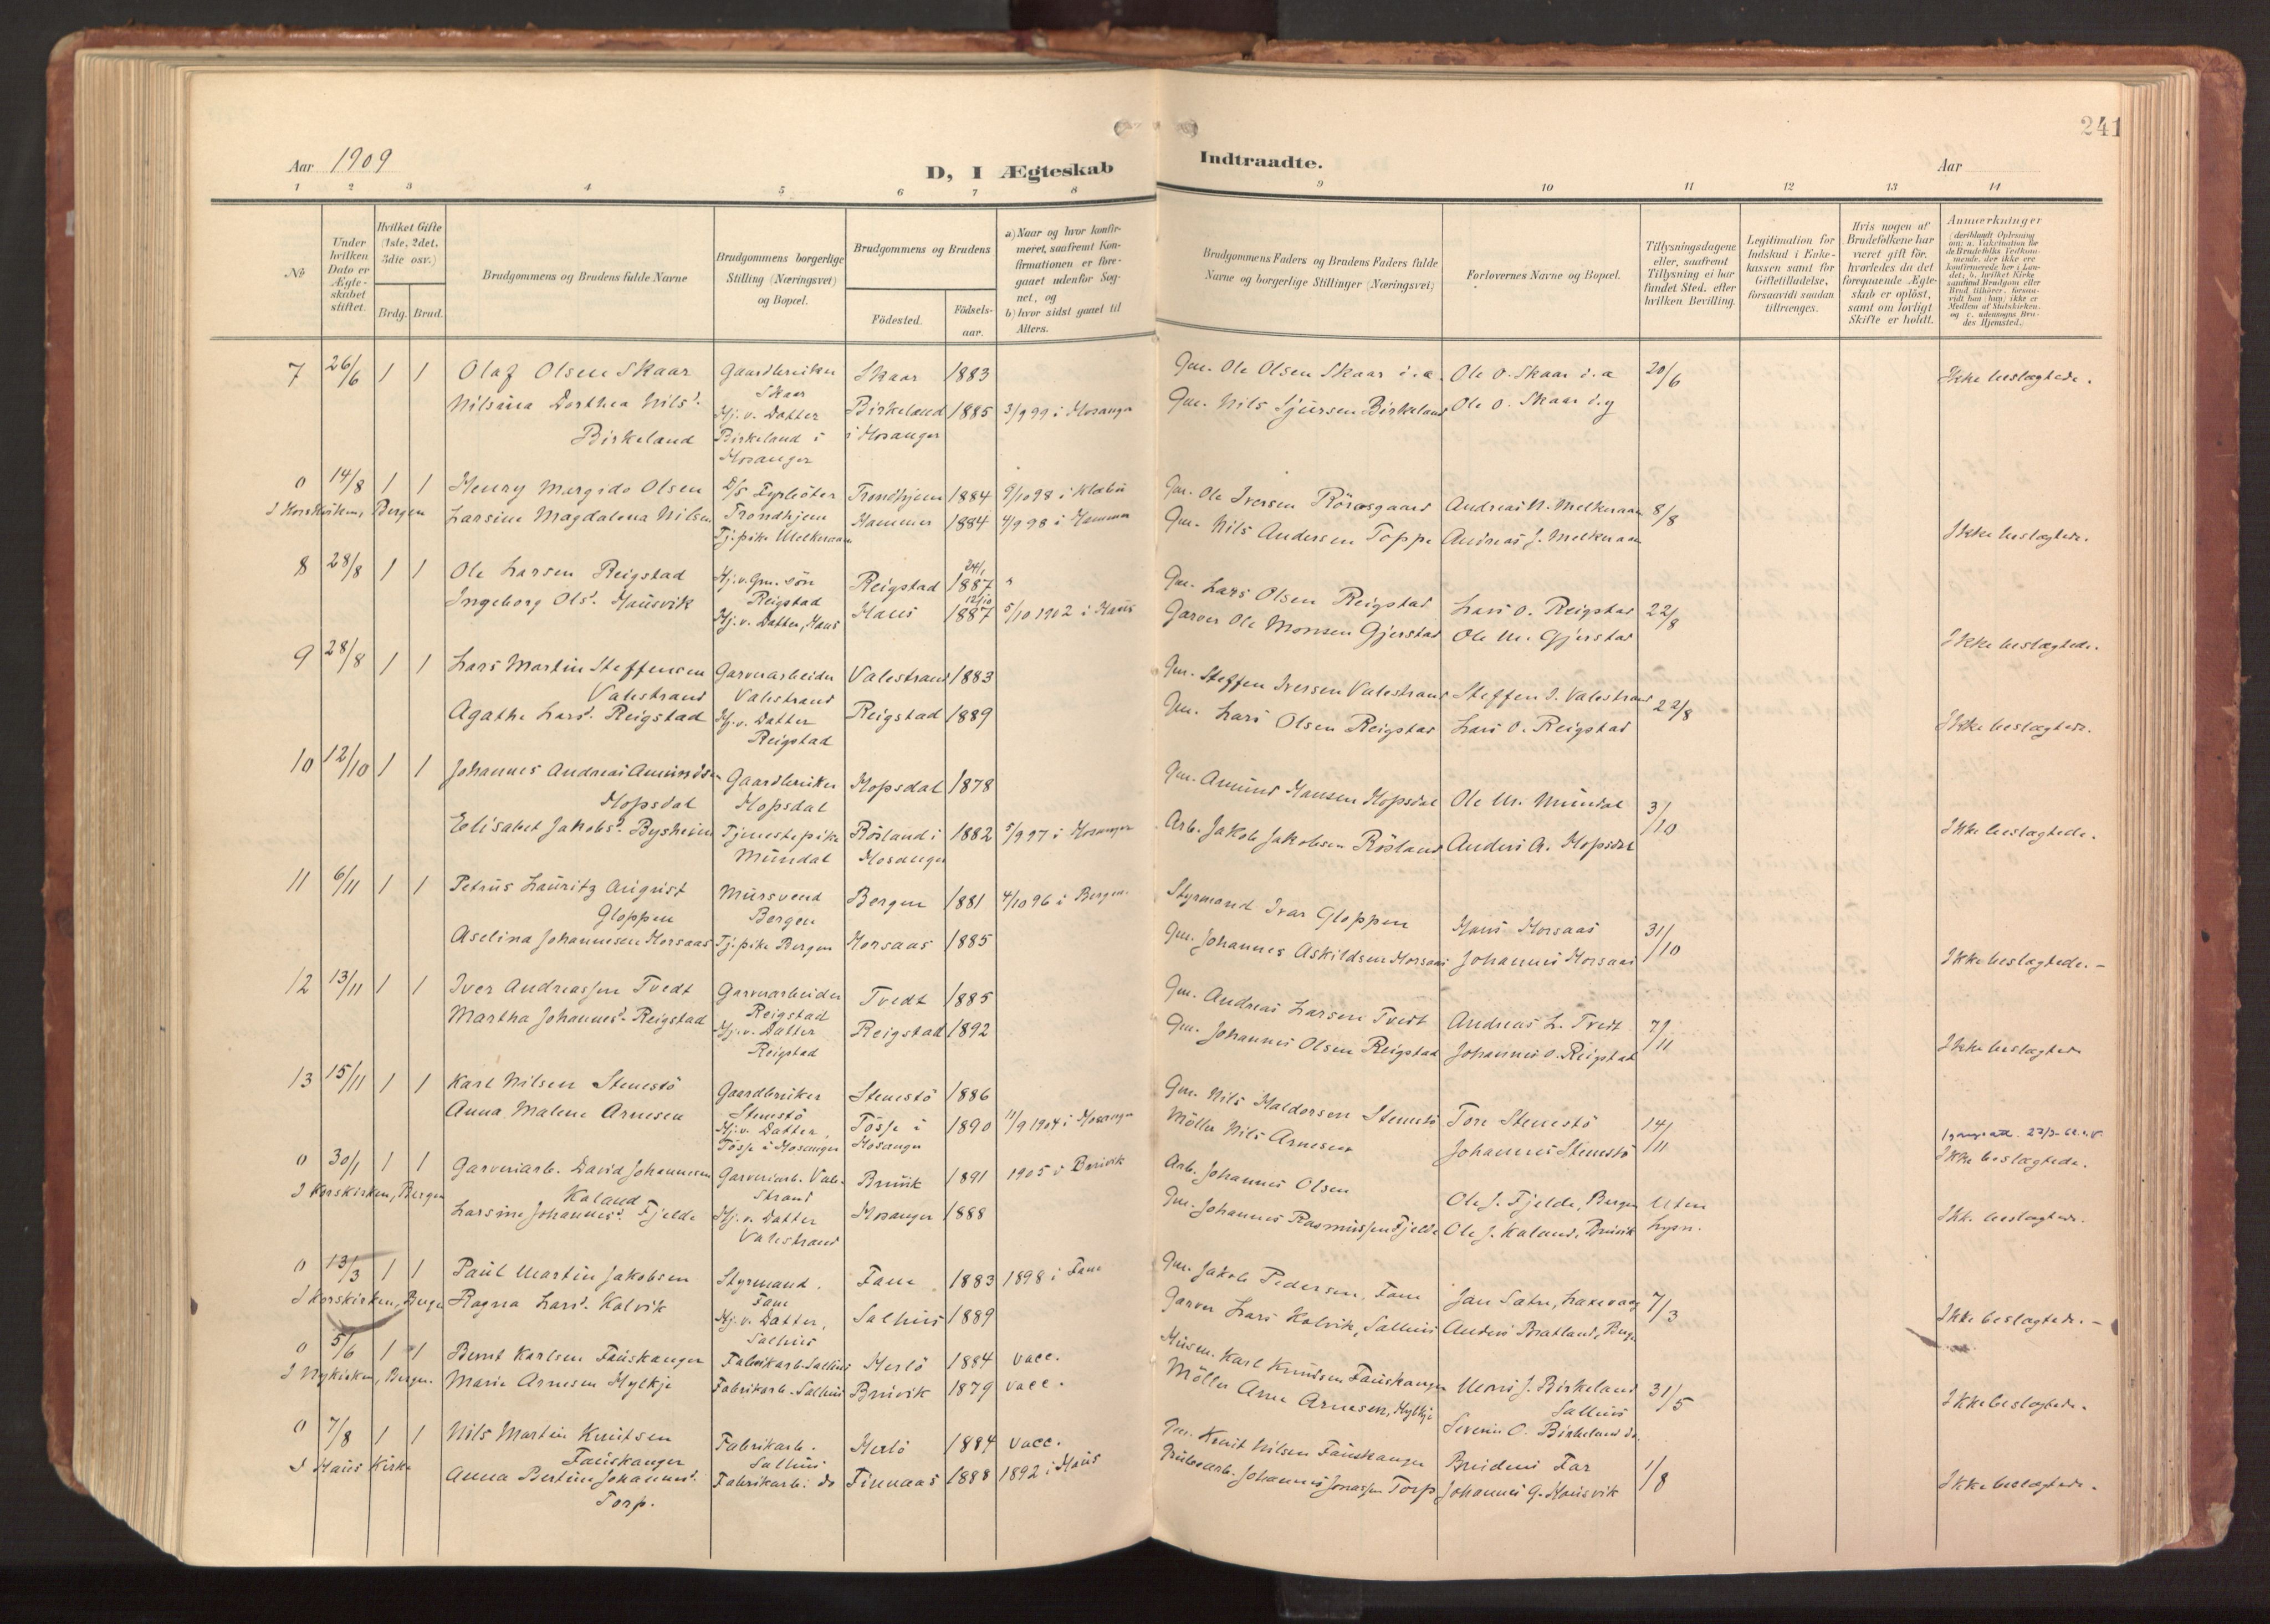 241
Aar 1909
D, I Ægteskab
Indtraadte.
Aar
1 2 3 4 5 6 7 8
9 10 11 12 13 14
No
Under hvilken Dato er Ægteskabet stiftet.
Hvilket Gifte (1ste, 2det, 3die osv.)
Brdg. Brud.
Brudgommens og Brudens fulde Navne
Brudgommens borgerlige Stilling (Næringsvei) og Bopæl.
Brudgommens og Brudens
Födested.
Födselsaar.
a) Naar og hvor konfirmeret, saafremt Konfirmationen er foregaaet udenfor Sognet, og
b) hvor sidst gaaet til Alters.
Brudgommens Faders og Brudens Faders fulde Navne og borgerlige Stillinger (Næringsvei)
Forlovernes Navne og Bopæl.
Tillysningsdagene eller, saafremt Tillysning ei har fundet Sted, efter hvilken Bevilling.
Legitimation for Indskud i Enkekassen samt for Giftetilladelse, forsaavidt saadan tiltrænges.
Hvis nogen af Brudefolkene har været gift før, hvorledes da det foregaaende Ægteskab er oplöst, samt om lovligt Skifte er holdt.
Anmærkninger
7 26/6 1 1 Olaf Olsen Skaar Gaardbruker Skaar 1883 Gm. Ole Olsen Skaar i.a. Ole O. Skaar i.a 20/6 Ikke beslægtede.
Skaar
Nilsina Dorthea Nilsd. Hj.v. Datter Birkeland 1885 3/9 99 i Hosanger Gm. Nils Sjursen Birkeland Ole O. Skaar d.y
Birkeland Birkeland i i Hosanger
Hosanger
0 14/8 1 1 Henry Margido Olsen D/S Fyrböter Trondhjem 1884 9/10 98 i Klæbu Gm. Ole Iversen Rörosgaard Andreas N. Melkeraaen 8/8
I Korskirken, Bergen Larsine Magdalena Nilsen Trondhjem Hammer 1884 4/9 98 i Hammer Gm. Nils Andersen Toppe Andreas J. Melkeraaen Ikke beslægtede.
Tj.pike Melkeraaen
8 28/8 1 1 Ole Larsen Reigstad Hj.v. Gm. sön Reigstad 24/1 1887 " Gm. Lars Olsen Reigstad Lars O. Reigstad 22/8
Reigstad
Ingeborg Olsd. Hausvik Hj.v. Datter, Haus Haus 12/10 1887 5/10 1902 i Haus Garver Ole Monsen Gjerstad Ole M. Gjerstad Ikke beslægtede.
9 28/8 1 1 Lars Martin Steffensen Garverarbeider Valestrand 1883 Gm. Steffen Iversen Valestrand Steffen I. Valestrand 22/8
Valestrand Valestrand
Agathe Larsd. Reigstad Hj.v. Datter Reigstad 1889 Gm. Lars Olsen Reigstad Lars O. Reigstad Ikke beslægtede.
Reigstad
10 12/10 1 1 Johannes Andreas Amundsen Gaardbruker Hopsdal 1878 Gm. Amund Hansen Hopsdal Ole M. Mundal 3/10
Hopsdal Hopsdal
Elisabet Jakobsd. Bysheim Tjenestepike Rösland i 1882 5/9 97 i Hosanger Arb. Jakob Jakobsen Rösland Anders A. Hopsdal Ikke beslægtede.
Mundal Hosanger
11 6/11 1 1 Petrus Lauritz August Mursvend Bergen 1881 4/10 96 i Bergen. Styrmand Ivar Gloppen Hans Horsaas 31/10
Gloppen Bergen
Aselina Johannesen Horsaas Tj.pike Bergen Horsaas 1885 Gm. Johannes Askildsen Horsaas Johannes Horsaas Ikke beslægtede. -
12 13/11 1 1 Iver Andreassen Tvedt Garverarbeider Tvedt 1885 Gm. Andreas Larsen Tvedt Andreas L. Tvedt 7/11
Reigstad
Martha Johannesd. Reigstad Hj.v. Datter Reigstad 1892 Gm. Johannes Olsen Reigstad Johannes O. Reigstad Ikke beslægtede
Reigstad
13 15/11 1 1 Karl Nilsen Stenestö Gaardbruker Stenestö 1886 Gm. Nils Haldorsen Stenestö Tore Stenestö 14/11
Stenestö
Anna Malene Arnesen Hj.v. Datter, Tösse i 1890 11/9 1904 i Hosanger Möller Nils Arnesen Johannes Stenestö Ikke beslægtede.
Tösse i Hosanger Hosanger
0 30/1 1 1 Garveriarb. David Johannesen Garveriarb. Vale- Bruvik 1891 1905 i Bruvik Arb. Johannes Olsen Ole J. Fjelde, Bergen Uten
I Korskirken, Bergen Kaland strand
Larsine Johannesd. Fjelde Hj.v. Datter Hosanger 1888 Gm. Johannes Rasmussen Fjelde Ole J. Kaland, Bruvik lysn. Ikke beslægtede.
Valestrand
0 13/3 1 1 Paul Martin Jakobsen Styrmand. Fane 1883 1898 i Fane Gm. Jakob Pedersen, Fane Jan Sætre, Laxevaag 7/3
Fane
I Korskirken, Bergen Ragna Larsd. Kalvik Hj.v. Datter, Salhus 1889 Garver Lars Kalvik, Salhus Anders Bratland, Bergen Ikke beslægtede. -
Salhus
0 5/6 1 1 Bernt Karlsen Fauskanger Fabrikarb. Salhus Herlö 1884 vacc. Husm. Karl Knudsen Fauskanger Mons J. Birkeland 31/5
Salhus
I Nykirken, Bergen. Marie Arnesen Hylkje Fabrikarb. Salhus Bruvik 1879 vacc. Möller Arne Arnesen, Hylkje Severin O. Birkeland do. Ikke beslægtede.
0 7/8 1 1 Nils Martin Knutsen Fabrikarb. Herlö 1884 vacc. Gm. Knut Nilsen Fauskanger Brudens Far 1/8
Fauskanger Salhus
I Haus Kirke Anna Bertine Johannesd. Fabrikarb. do Finnaas 1888 1892 i Haus Grubearb. Johannes Jonassen Torp Johannes G. Hausvik Ikke beslægtede.
Torp.